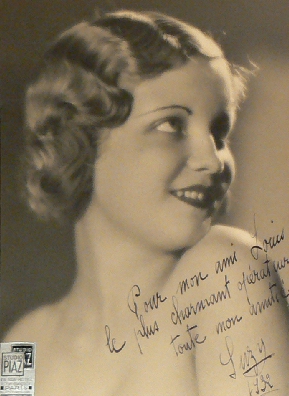 Pour mon ami Louis
le plus charmant opérateur
toute mon amitié
1932
STUDIO
PIAZ
PARIS